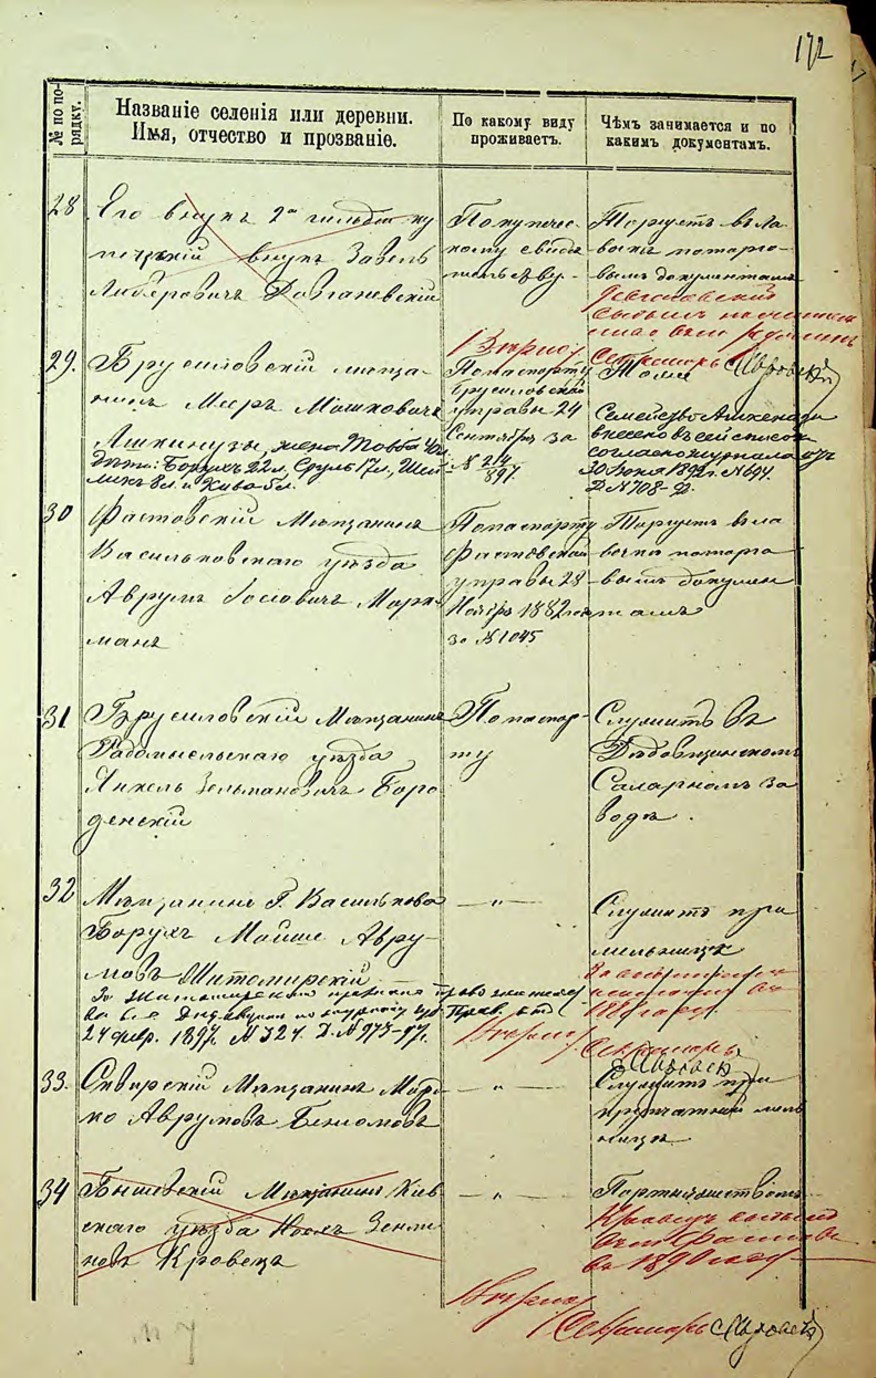 172
№ по по-
рядку.
Названіе селенія или деревни.
Имя, отчество и прозваніе.
По какому виду
проживаетъ.
Чѣмъ занимается и по
какимъ документамъ.
28
Его внукъ 2й гильдіи ку
печескій внукъ Завель
Либеровичъ Довгалевскій
По купечес-
кому свидѣ
тельству.
Торгуетъ въ ла
вочкѣ по торго-
вымъ документамъ
Вѣрно
Секретарь
29.
Брусиловскій мѣща-
нинъ Мееръ Мошковичъ
Ашкинузы, жена Товба 40 л.
дѣти: Борухъ 22 л. Сруль 17 л., Шей
8 л. и Хива 5 л.
По паспорту
Брусиловской
управы 24
Сентября за
№ 214/891.
Тоже
Семейство Ашкенази
внесено въ сей списокъ
согласно журнала
30 Іюня 1892 г. № 694.
Д № 708-
30
Фастовскій Мѣщанинъ
Васильковскаго уѣзда
Аврумъ Іосовичъ Марк-
манъ
По паспорту
Фастовской
управы 28
Ноября 1882 года
за № 1045
Торгуетъ въ ла
вочкѣ по торго
вымъ докумен
тамъ
31
Брусиловскій Мѣщанинъ
Радомысльскаго уѣзда
Янкель Зельмановичъ Боро
денскій
По паспор-
ту
Служитъ въ
Дѣдовщинскомъ
Сахарномъ за
водѣ.
32
Мѣщанинъ г. Василькова
Борухъ Мойше Авру-
мовъ Житомирскій
За Житомирскимъ признано право жительс
въ с. Дѣдовщинѣ по журналу Губ. Прав. отъ
24 февр. 1897 г. № 324. Д. № 973-97 г.
— „ —
Служитъ при
мельницѣ
Вѣрно
Секретарь
33.
Сквирскій Мѣщанинъ Мар-
ко Аврумовъ Беніомовъ
— „ —
Служитъ при
крупчатной мель
ницѣ
34
Бышевскій Мѣщанинъ Кіев
скаго уѣзда Носъ Зель
новъ Кровецъ
— „ —
Портняжествомъ
Кравецъ выбылъ
въ м. Фастовъ
въ 1890 году
Вѣрно
Секретарь